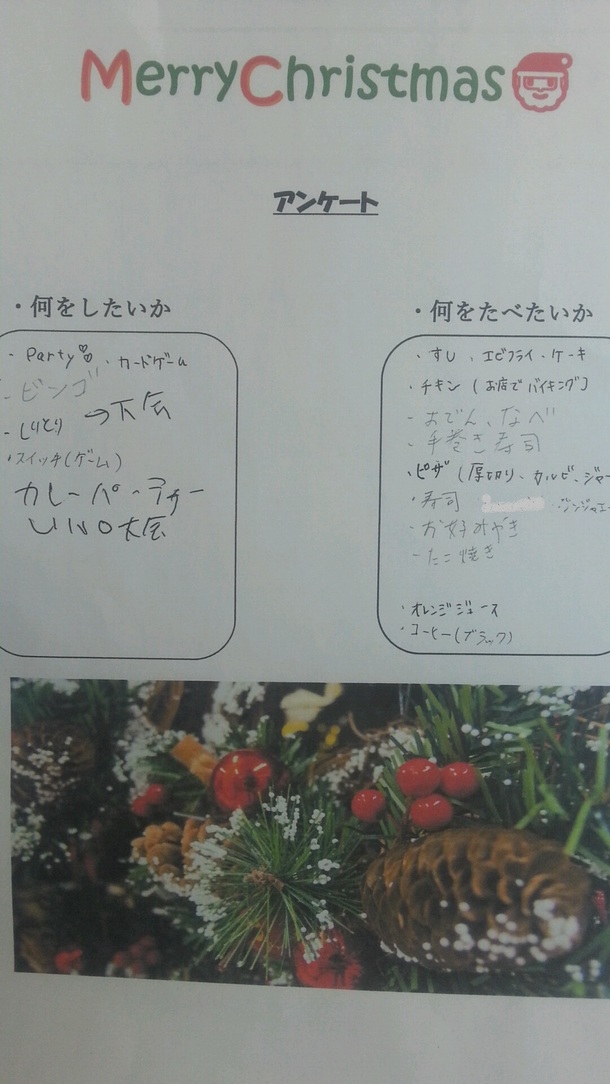 MerryChristmas
アンケート
・何をしたいか
- Party、カードゲーム
- ビンゴ
- しりとり → 大会
・スイッチ(ゲーム)
カレーパーティー
UNO大会
・何をたべたいか
・すし、エビフライ・ケーキ
・チキン(お店でバイキング)
- おでん、なべ
- 手巻き寿司
・ピザ(厚切り、カルビ、ジャー
・寿司
・お好みやき
- たこ焼き
・オレンジジュース
・コーヒー(ブラック)